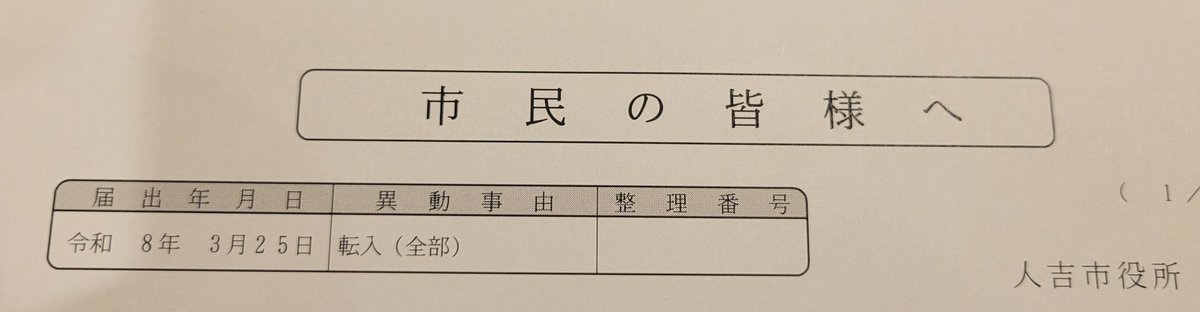 市民の皆様へ
(1/
届出年月日 異動事由 整理番号
令和 8年 3月25日 転入(全部)
人吉市役所